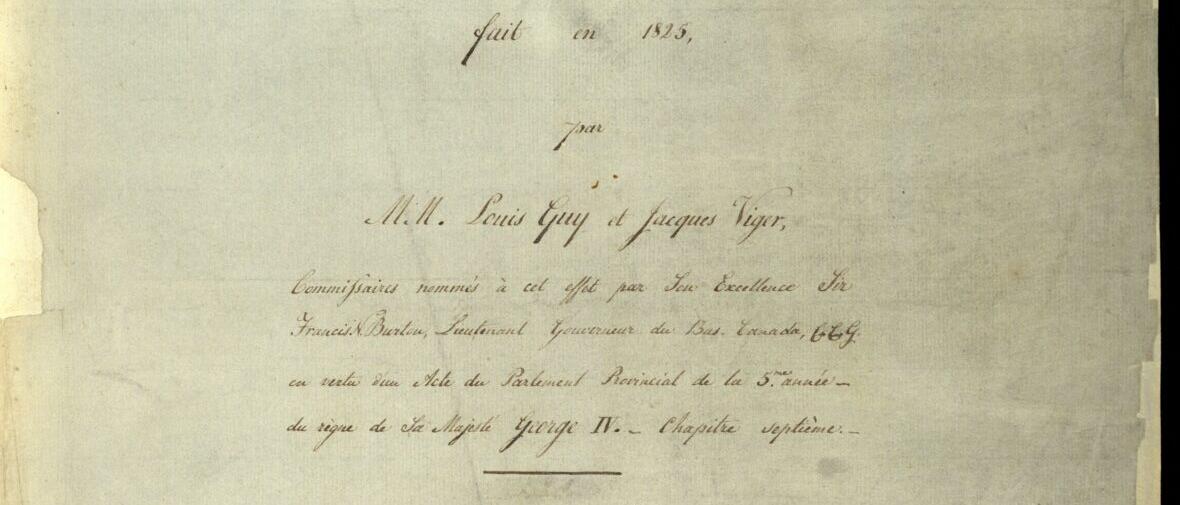 fait en 1825,
par
MM. Louis Guy et Jacques Viger,
Commissaires nommés à cet effet par Son Excellence Sir
Francis N Burton, Lieutenant Gouverneur du Bas-Canada,
en vertu d'un Acte du Parlement Provincial de la 5.me année _
du règne de Sa Majesté George IV. _ Chapitre septième. _